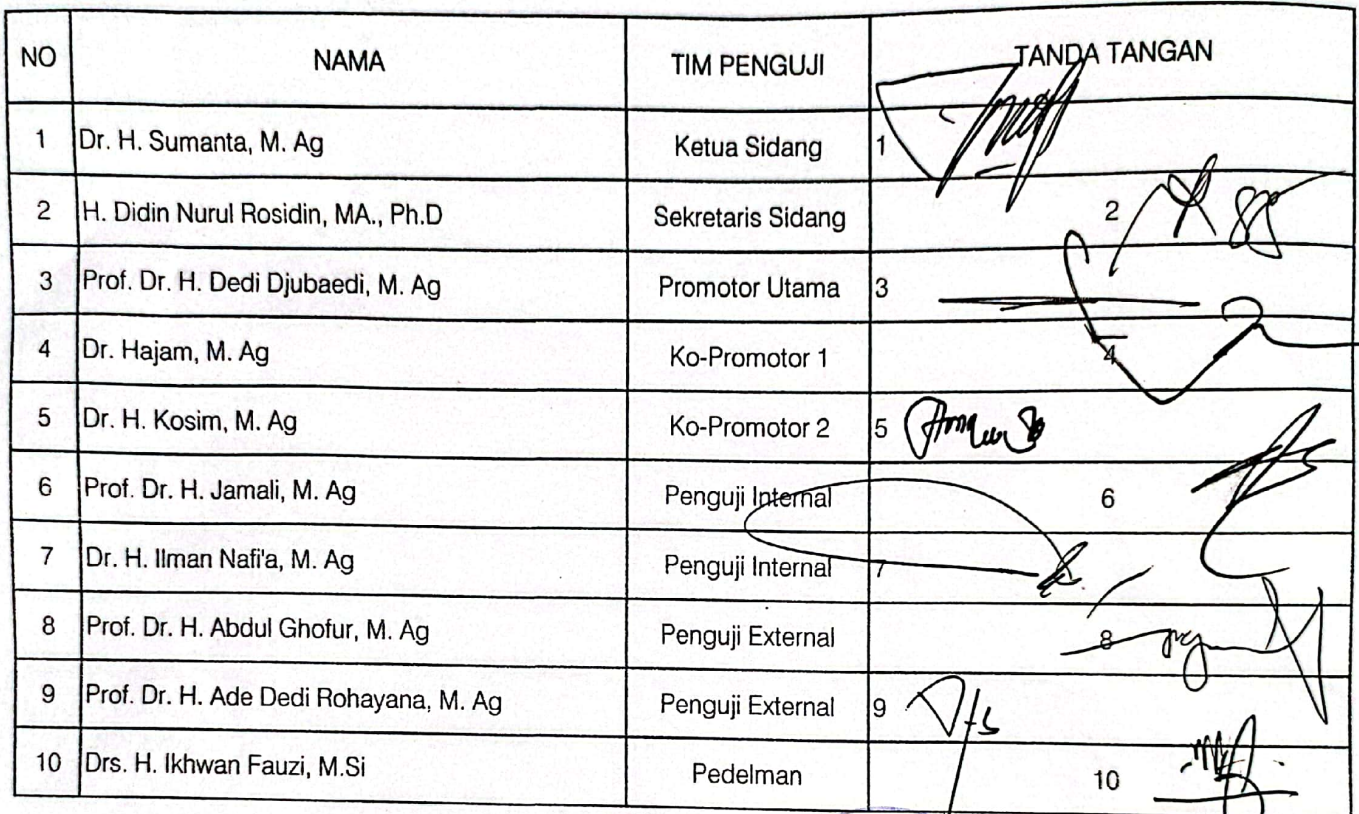 NO NAMA TIM PENGUJI TANDA TANGAN
1 Dr. H. Sumanta, M. Ag Ketua Sidang 1
2 H. Didin Nurul Rosidin, MA., Ph.D Sekretaris Sidang 2
3 Prof. Dr. H. Dedi Djubaedi, M. Ag Promotor Utama 3
4 Dr. Hajam, M. Ag Ko-Promotor 1 4
5 Dr. H. Kosim, M. Ag Ko-Promotor 2 5
6 Prof. Dr. H. Jamali, M. Ag Penguji Internal 6
7 Dr. H. Ilman Nafi'a, M. Ag Penguji Internal 7
8 Prof. Dr. H. Abdul Ghofur, M. Ag Penguji External 8
9 Prof. Dr. H. Ade Dedi Rohayana, M. Ag Penguji External 9
10 Drs. H. Ikhwan Fauzi, M.Si Pedelman 10